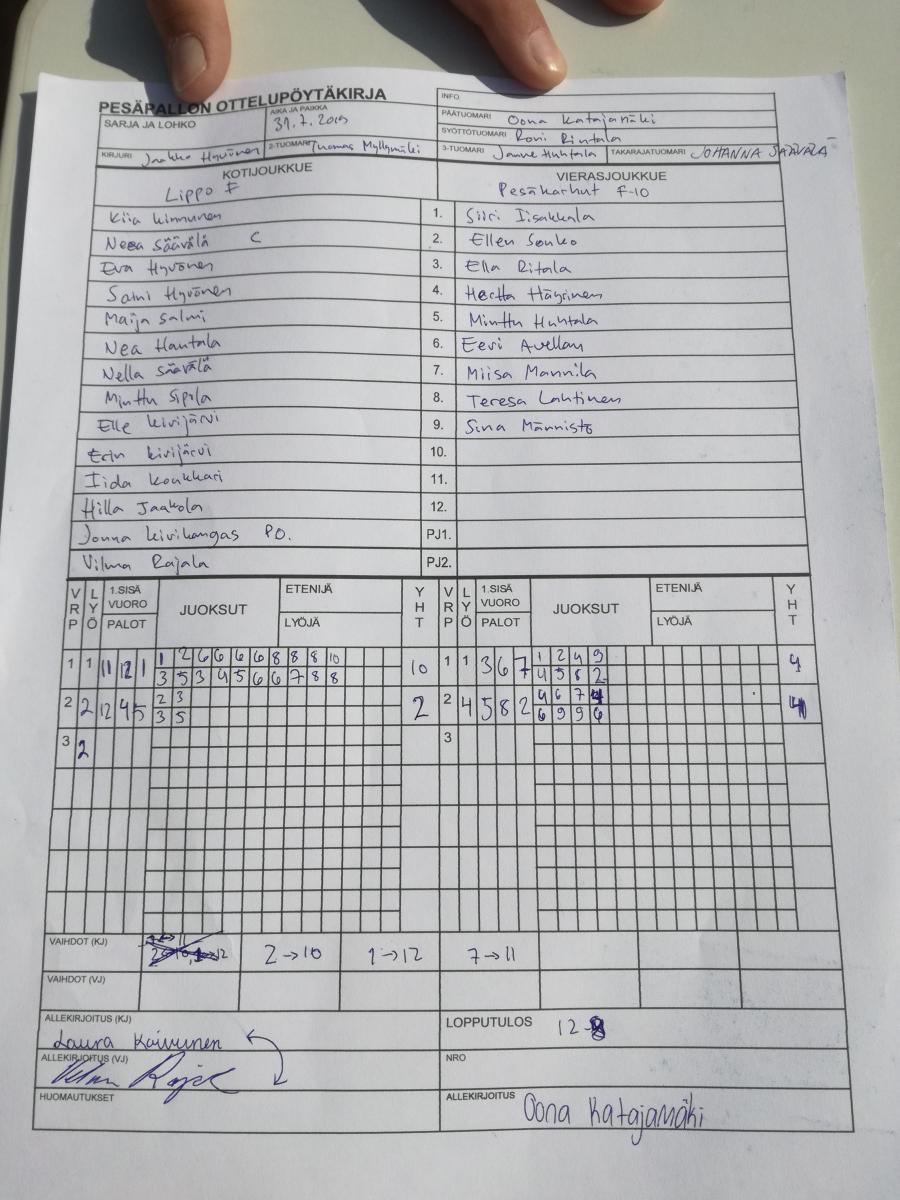 PESÄPALLON OTTELUPÖYTÄKIRJA
INFO
SARJA JA LOHKO
AIKA JA PAIKKA 31.7.2019
PÄÄTUOMARI Oona Katajamäki
SYÖTTÖTUOMARI Roni Rintala
KIRJURI Jaakko Hyvönen 2-TUOMARI Tuomas Myllymäki 3-TUOMARI Janne Huhtala TAKARAJATUOMARI JOHANNA SÄÄVÄLÄ
KOTIJOUKKUE VIERASJOUKKUE
Lippo F Pesäkarhut F-10
Kiia Kinnunen 1. Siiri Iisakkala
Neea Säävälä C 2. Ellen Sonko
Eva Hyvönen 3. Ella Ritala
Saini Hyvönen 4. Hertta Häyrinen
Maija Salmi 5. Minttu Huhtala
Nea Hautala 6. Eevi Avellan
Nella Säävälä 7. Miisa Mannila
Minttu Sipilä 8. Teresa Lahtinen
Elle Kivijärvi 9. Sina Männistö
Erin Kivijärvi 10.
Iida Koukkari 11.
Hilla Jaakola 12.
Jonna Kivikangas PO. PJ1.
Vilma Rajala PJ2.
VRP LYÖ 1.SISÄ VUORO PALOT JUOKSUT ETENIJÄ LYÖJÄ YHT VRP LYÖ 1.SISÄ VUORO PALOT JUOKSUT ETENIJÄ LYÖJÄ YHT
1 1 11 12 1 1 2 6 6 6 6 8 8 8 10 10 1 1 3 6 7 1 2 4 9 4
3 5 3 4 5 6 6 7 8 8 4 5 8 2
2 2 12 4 5 2 3 2 2 4 5 8 2 4 6 7 4 4
3 5 6 9 9 6
3 2 3
VAIHDOT (KJ) 2→10 1→12 7→11
VAIHDOT (VJ)
ALLEKIRJOITUS (KJ) Laura Koivunen
LOPPUTULOS 12-8
ALLEKIRJOITUS (VJ)
NRO
HUOMAUTUKSET
ALLEKIRJOITUS Oona Katajamäki